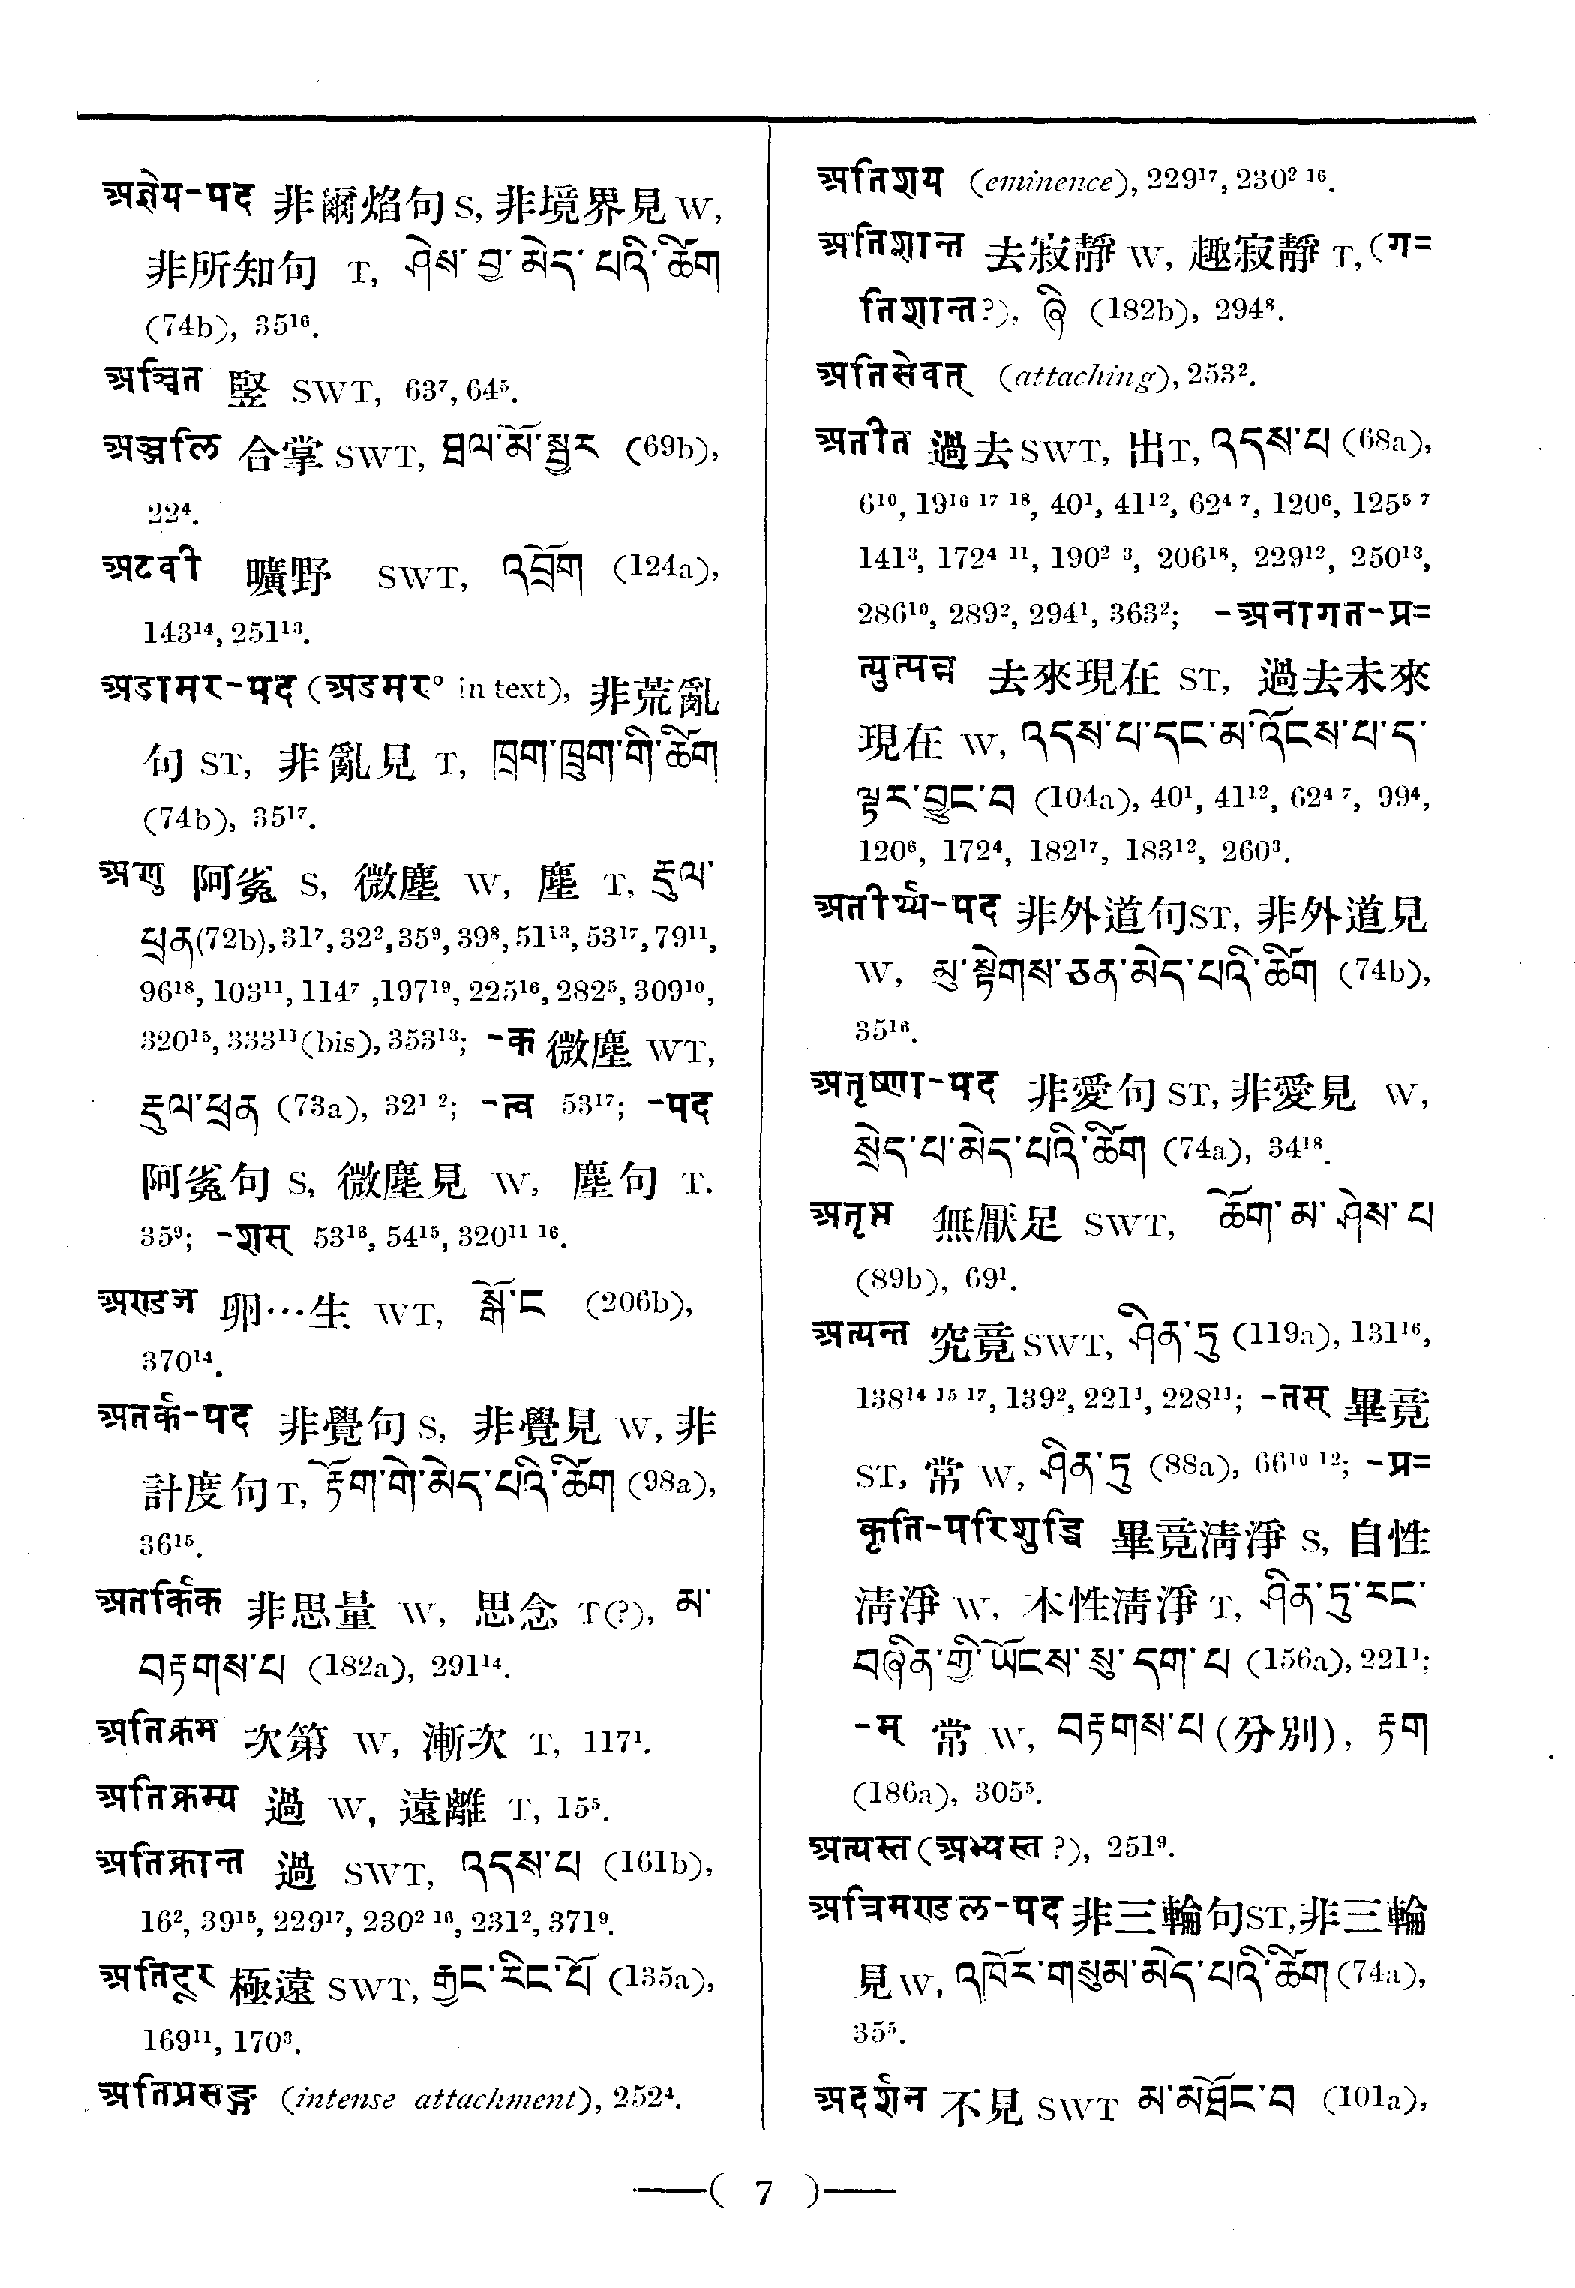 अज्ञेय-पद 非爾焰句 S, 非境界見 W,
非所知句 T, ཤེས་བྱ་མེད་པའི་ཚོག
(74b), 35¹⁶.
अञ्चित 竪 SWT, 63⁷, 64⁵.
अञ्जलि 合掌 SWT, ཐལ་མོ་སྦྱར (69b),
22⁴.
अटवी 曠野 SWT, འབྲོག (124a),
143¹⁴, 251¹³.
अडामर-पद (अडमर° in text), 非荒亂
句 ST, 非亂見 T, ཁྲག་ཁྲུག་གི་ཚོག
(74b), 35¹⁷.
अणु 阿㝹 S, 微塵 W, 塵 T, རྡུལ་
ཕྲན(72b), 31⁷, 32², 35⁹, 39⁸, 51¹³, 53¹⁷, 79¹¹,
96¹⁸, 103¹¹, 114⁷ ,197¹⁹, 225¹⁶, 282⁵, 309¹⁰,
320¹⁵, 333¹¹(bis), 353¹³; -क 微塵 WT,
རྡུལ་ཕྲན (73a), 32¹ ²; -त्व 53¹⁷; -पद
阿㝹句 S, 微塵見 W, 塵句 T.
35⁹; -शस् 53¹⁶, 54¹⁵, 320¹¹ ¹⁶.
अण्डज 卵…生 WT, སྒོ་ང (206b),
370¹⁴.
अतर्क-पद 非覺句 S, 非覺見 W, 非
計度句 T, རྟོག་གེ་མེད་པའི་ཚོག (98a),
36¹⁵.
अतर्किक 非思量 W, 思念 T(?), མ་
བརྟགས་པ (182a), 291¹⁴.
अतिक्रम 次第 W, 漸次 T, 117¹.
अतिक्रम्य 過 W, 遠離 T, 15⁵.
अतिक्रान्त 過 SWT, འདས་པ (161b),
16², 39¹⁵, 229¹⁷, 230² ¹⁶, 231², 371⁹.
अतिदूर 極遠 SWT, རྒྱང་རིང་པོ (135a),
169¹¹, 170³.
अतिप्रसङ्ग (intense attachment), 252⁴.
अतिशय (eminence), 229¹⁷, 230² ¹⁶.
अतिशान्त 去寂靜 W, 趣寂靜 T, (ग=
तिशान्त?), ཞི (182b), 294⁸.
अतिसेवत् (attaching), 253².
अतीत 過去 SWT, 出T, འདས་པ (68a),
6¹⁰, 19¹⁶ ¹⁷ ¹⁸, 40¹, 41¹², 62⁴ ⁷, 120⁶, 125⁵ ⁷
141³, 172⁴ ¹¹, 190² ³, 206¹⁸, 229¹², 250¹³,
286¹⁰, 289², 294¹, 363²; -अनागत-प्र=
त्युत्पन्न 去來現在 ST, 過去未來
現在 W, འདས་པ་དང་མ་འོངས་པ་ད་
ལྟར་བྱུང་བ (104a), 40¹, 41¹², 62⁴ ⁷, 99⁴,
120⁶, 172⁴, 182¹⁷, 183¹², 260³.
अतीर्थ्य-पद 非外道句ST, 非外道見
W, མུ་སྟེགས་ཅན་མེད་པའི་ཚོག (74b),
35¹⁶.
अतृष्णा-पद 非愛句 ST, 非愛見 W,
སྲེད་པ་མེད་པའི་ཚོག (74a), 34¹⁸.
अतृप्त 無厭足 SWT, ཆོག་མ་ཤེས་པ
(89b), 69¹.
अत्यन्त 究竟 SWT, ཤིན་ཏུ (119a), 131¹⁶,
138¹⁴ ¹⁵ ¹⁷, 139², 221¹, 228¹¹; -तस् 畢竟
ST, 常 W, ཤིན་ཏུ (88a), 66¹⁰ ¹²; -प्र=
कृति-परिशुद्धि 畢竟淸淨 S, 自性
淸淨 W, 本性淸淨 T, ཤིན་ཏུ་རང་
བཞིན་གྱི་ཡོངས་སུ་དག་པ (156a), 221¹;
-म् 常 W, བརྟགས་པ (分別), རྟག
(186a), 305⁵.
अत्यस्त (अभ्यस्त ?), 251⁹.
अत्रिमण्डल-पद 非三輪句ST, 非三輪
見W, འཁོར་གསུམ་མེད་པའི་ཚོག (74a),
35⁵.
अदर्शन 不見 SWT མ་མཐོང་བ (101a),
( 7 )